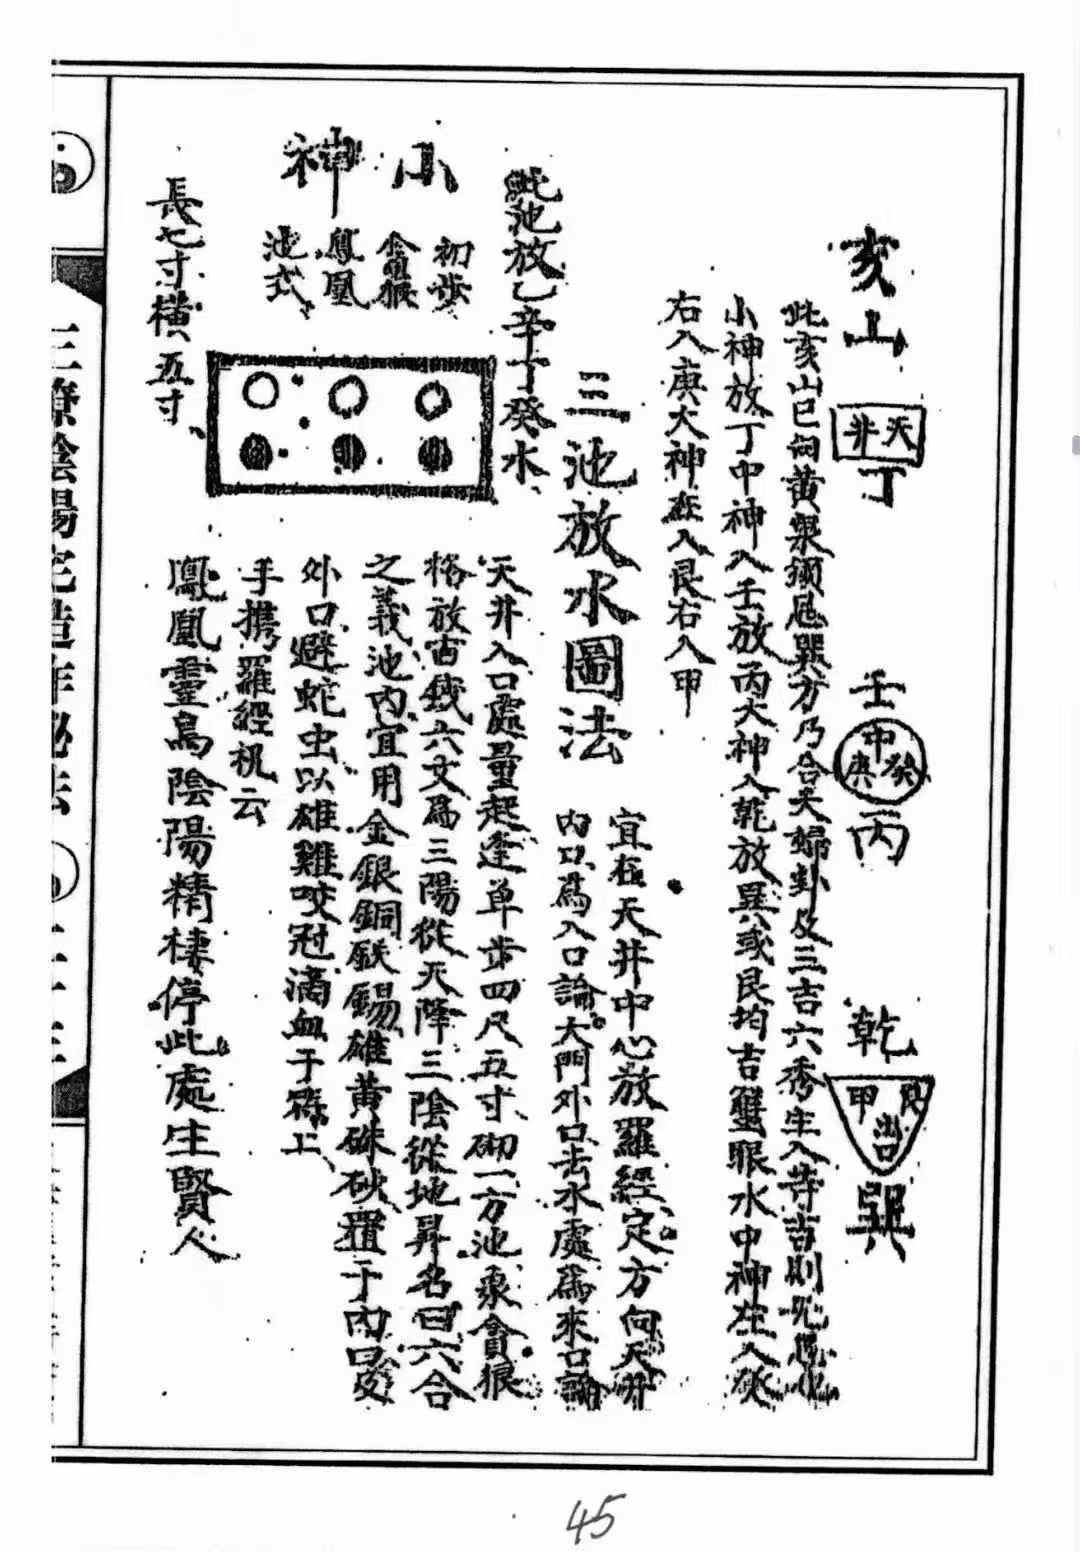 亥山
天井
丁
壬
中
癸
庚
丙
乾
艮
甲
巽
此亥山巳向黄泉須忌巽方乃合夫婦卦及三吉六秀生入等吉則
小神放丁中神入壬放丙大神入乾放巽或艮均吉蟹眼水中神左入
右入庚大神左入艮右入甲
三池放水圖法
宜在天井中心放羅經定方向天井
内口為入口論大門外口去水處為來口論
此池放乙辛丁癸水
小神
初步
貪狼
鳳凰
池式
長七寸横五寸
天井入口處量起逢单步四尺五寸砌一方池象貪狼
格放古錢六文為三陽從天降三陰從地昇名曰六合
之義池内宜用金銀銅鉄錫雄黄硃砂置于内口及
外口避蛇虫以雄雞咬冠滴血于磚上
手携羅經机云
鳳凰靈鳥陰陽精棲停此處生賢人
三寮陰陽宅造作秘法
45